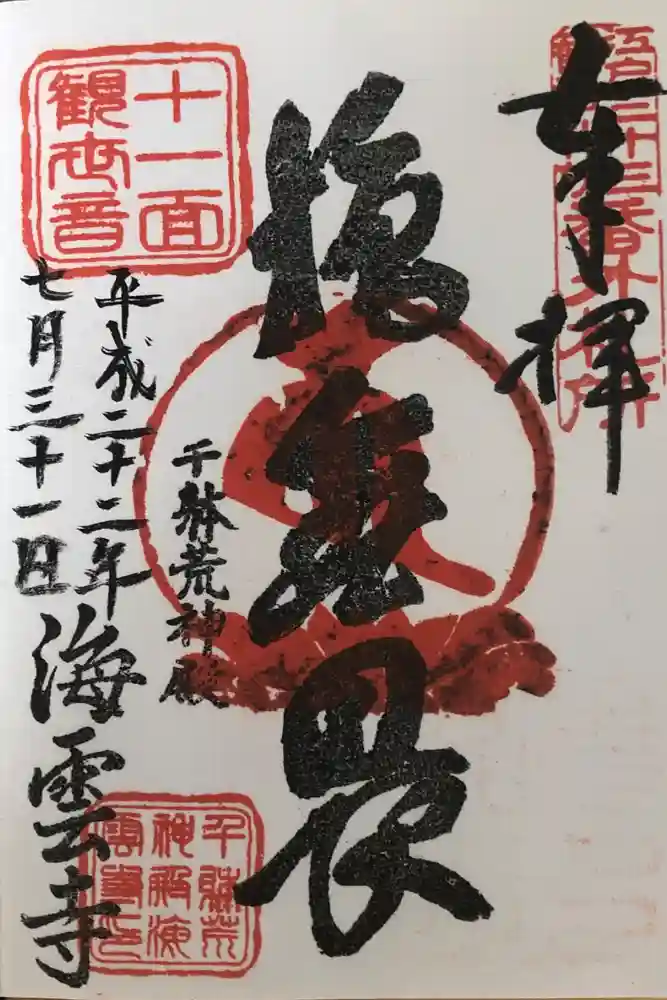 奉拝
施無畏
千躰荒神殿
平成二十二年
七月三十一日
海雲寺
十一面
観世音
千躰荒
神殿海
雲寺印